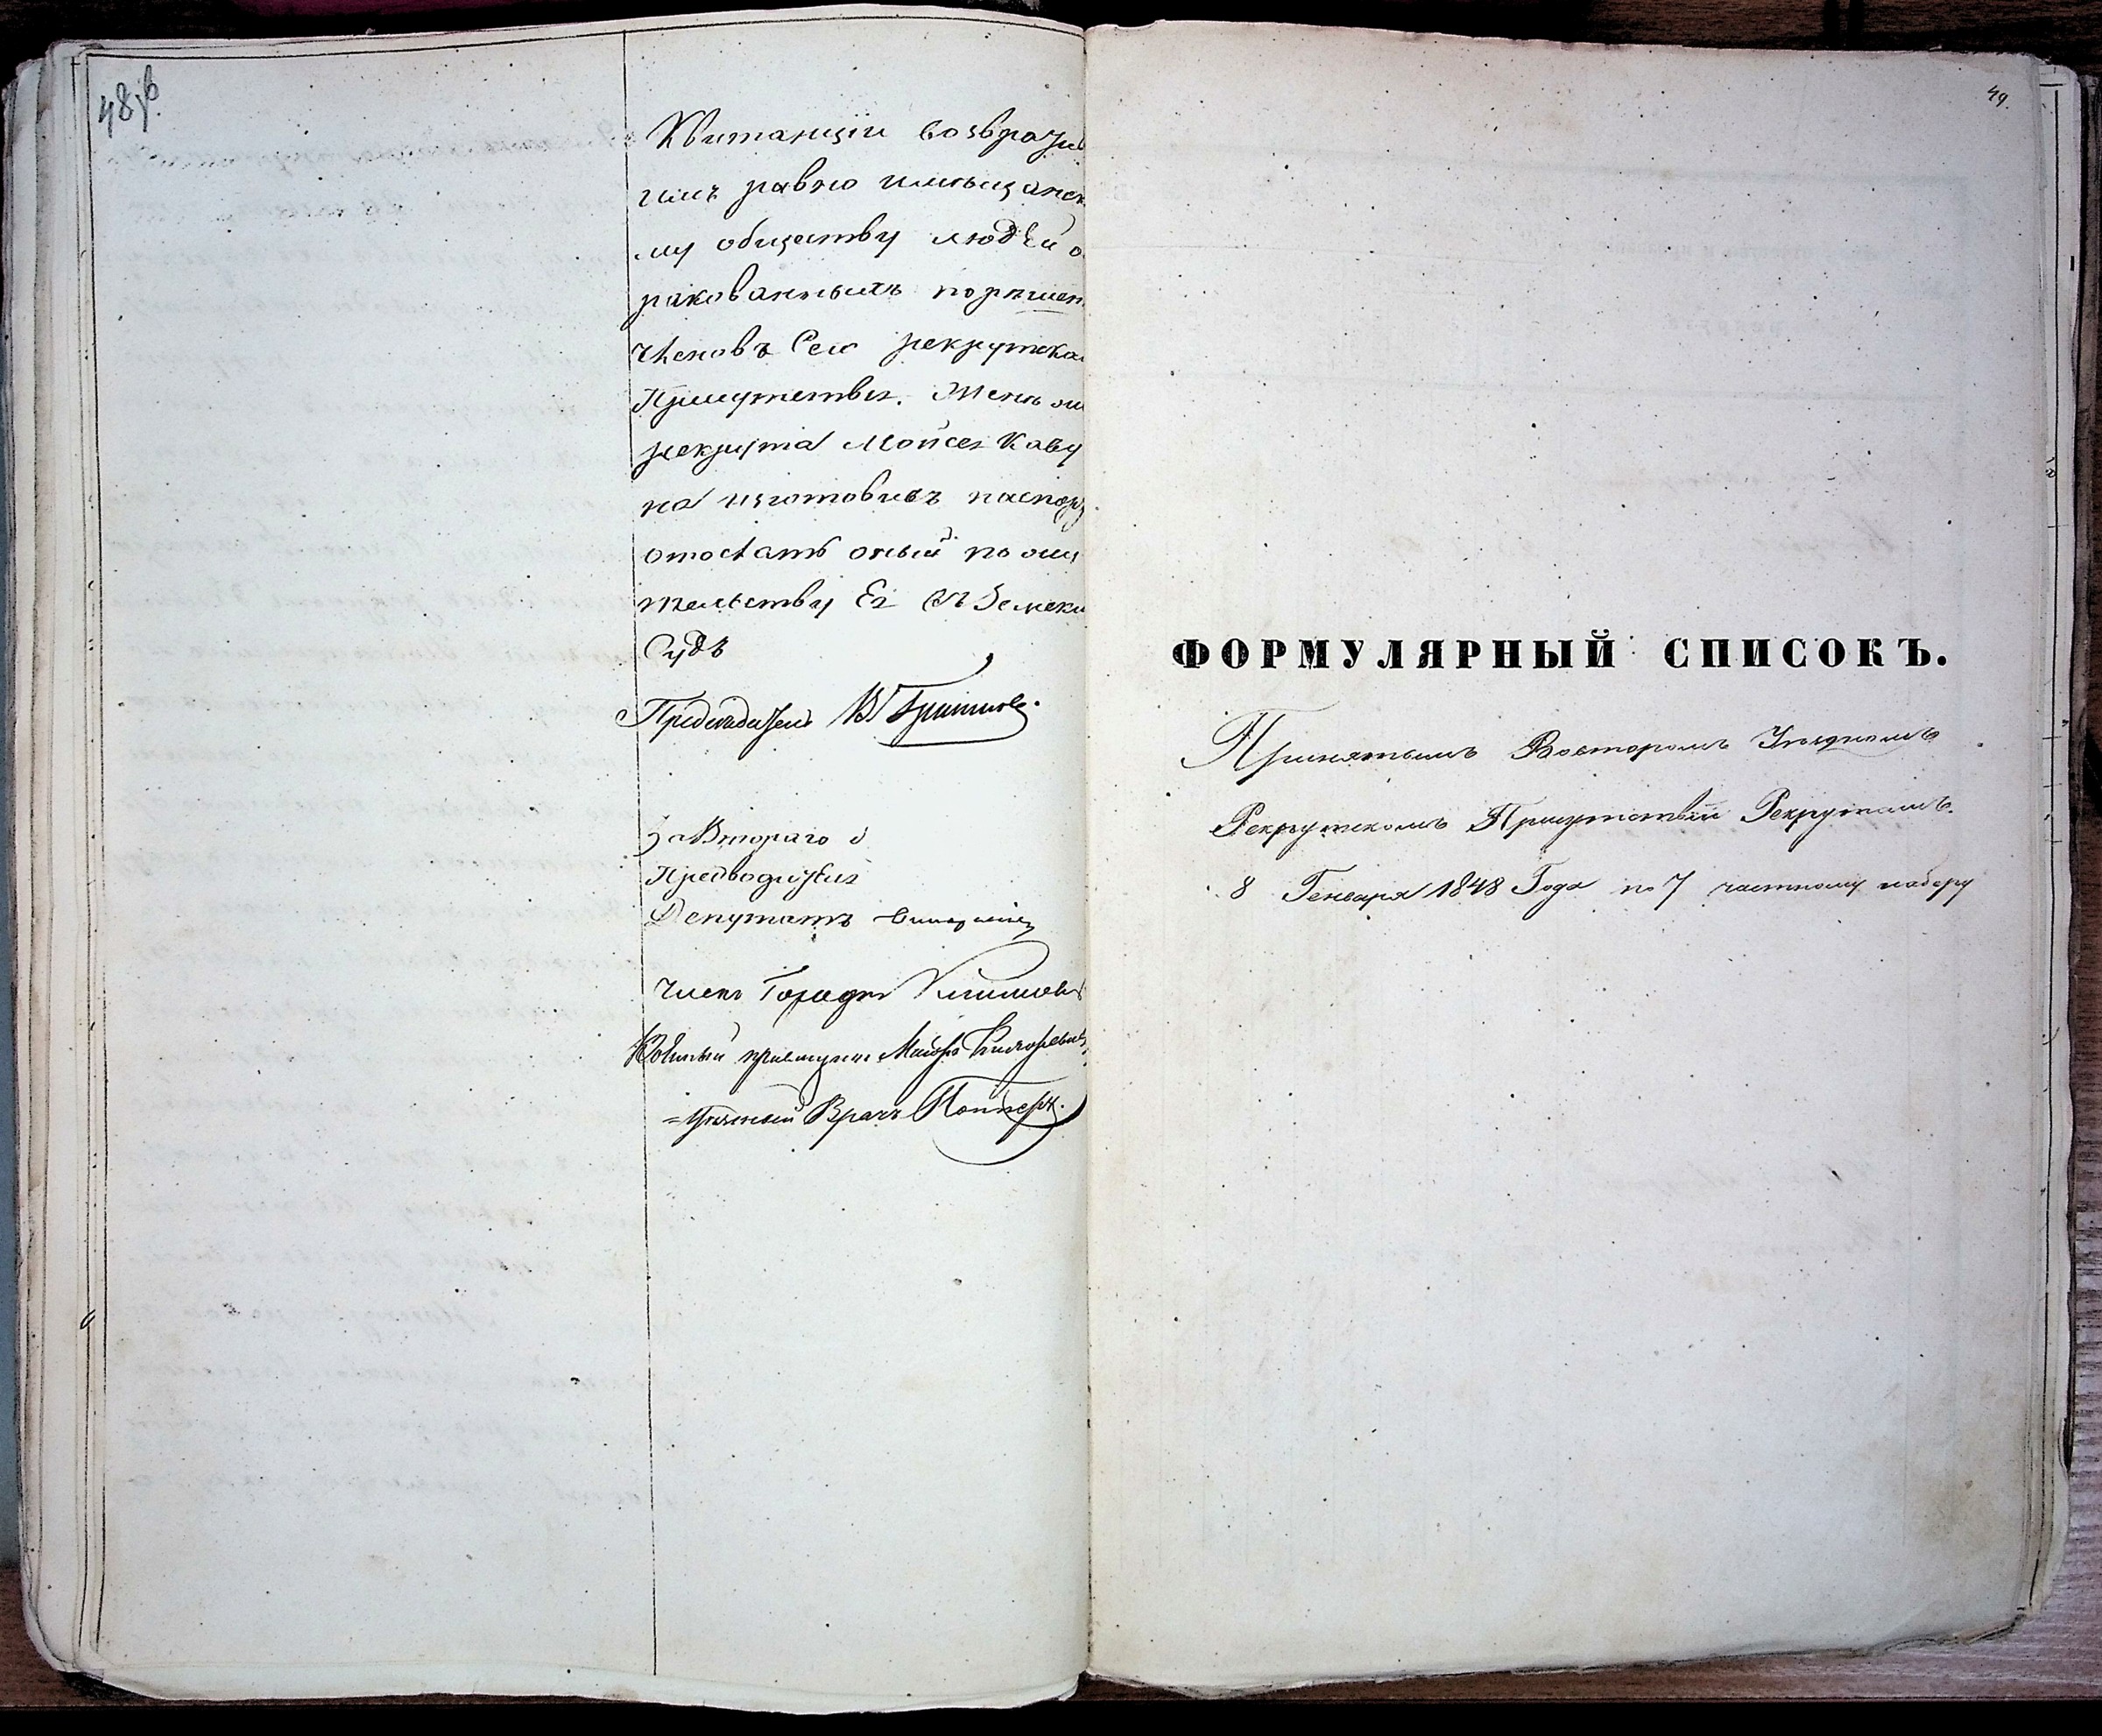 48 об.
Квитанціи возврати
имъ равно и мѣщанск
му обществу людей о
ракованныхъ по рѣшен
Членовъ Сего рекрутска
Присутствія. Женѣ же
рекрута Мойсея Каву
на изготовивъ паспор
отослать оный по жи
тельству Ея въ Земски
Судъ
Предсѣдатель В
За Втораго
Предводителя
Депутатъ
Членъ Городн Климов
Военный пріемщикъ Маіоръ
Уѣздный Врачъ
49.
ФОРМУЛЯРНЫЙ СПИСОКЪ.
Принятымъ Уѣзднымъ
Рекрутскомъ Присутствіи Рекрутамъ.
8 Генваря 1848 Года по 7 частному набору